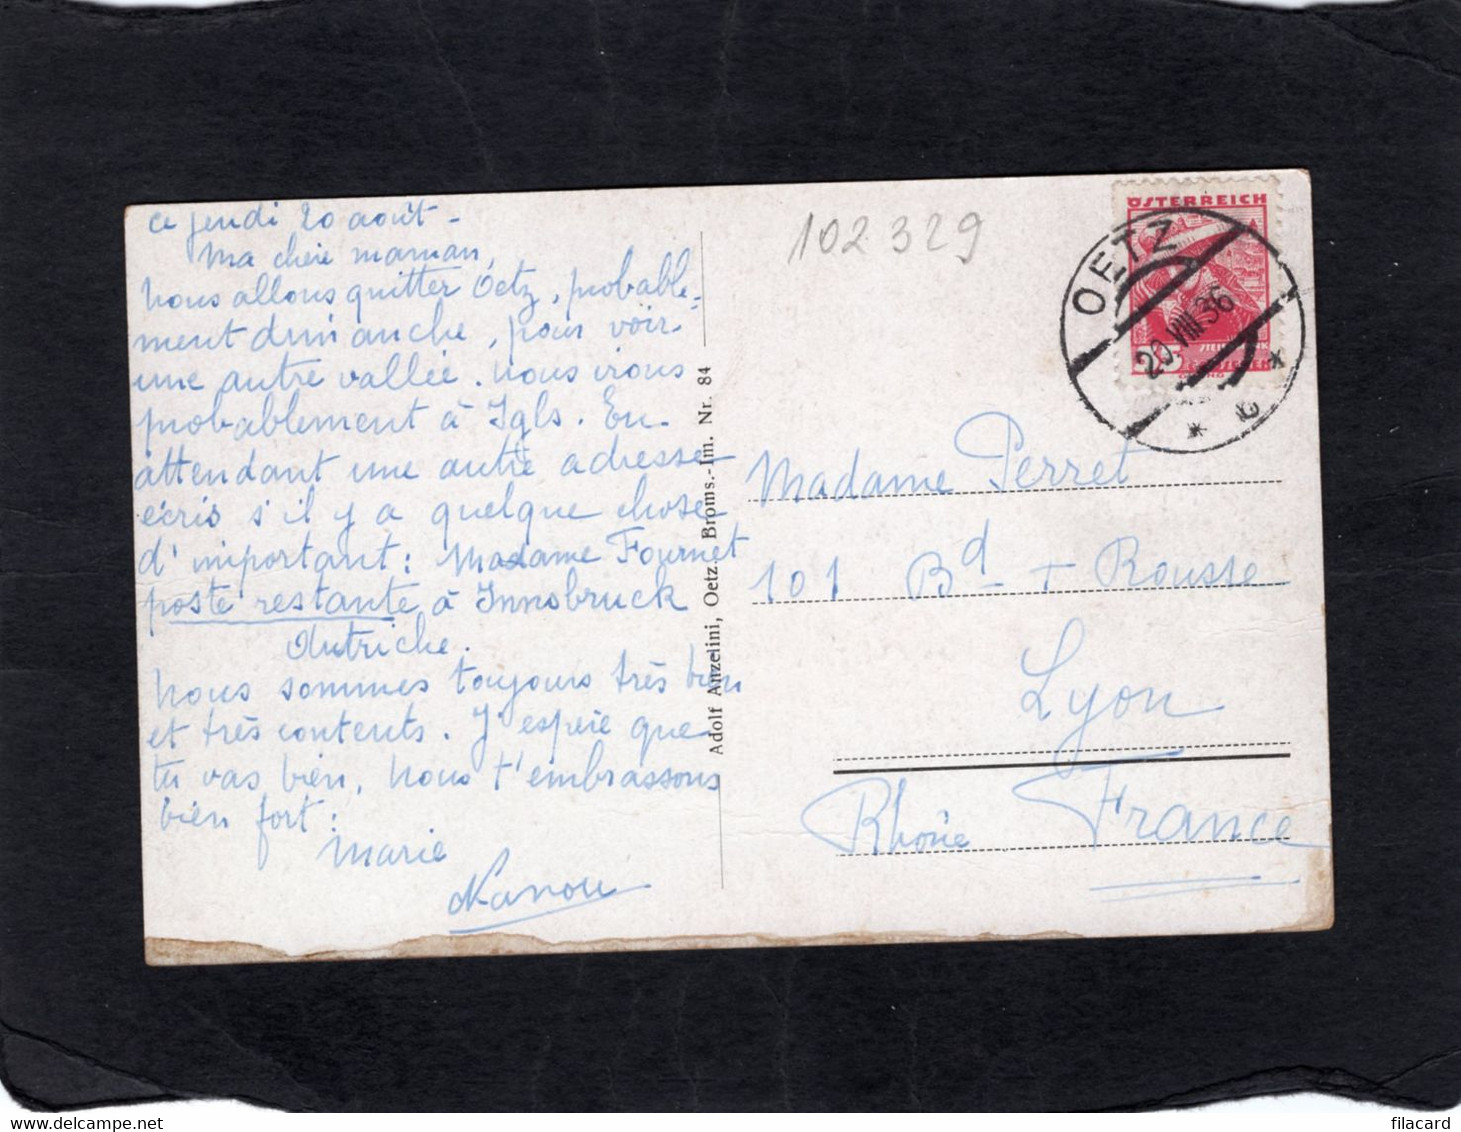 ce jeudi 20 août -
Ma chère maman,
Nous allons quitter Oetz, probable-
ment dimanche, pour voir
une autre vallée. Nous irons
probablement à Igls. En
attendant une autre adresse
écris s'il y a quelque chose
d'important : Madame Fournet
poste restante à Innsbruck
Autriche.
Nous sommes toujours très bien
et très contents. J'espère que
tu vas bien, nous t'embrassons
bien fort :
Marie
Nanou
Adolf Anzelini, Oetz. Broms.-Im. Nr. 84
102 329
ÖSTERREICH
OETZ
20.VIII.36
Madame Perret
101 Bd + Rousse
Lyon
Rhône France
filacard